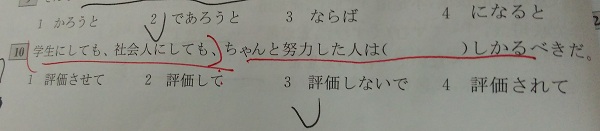 1 かろうと 2 であろうと 3 ならば 4 になると
10 学生にしても、社会人にしても、ちゃんと努力した人は( )しかるべきだ。
1 評価させて 2 評価して 3 評価しないで 4 評価されて